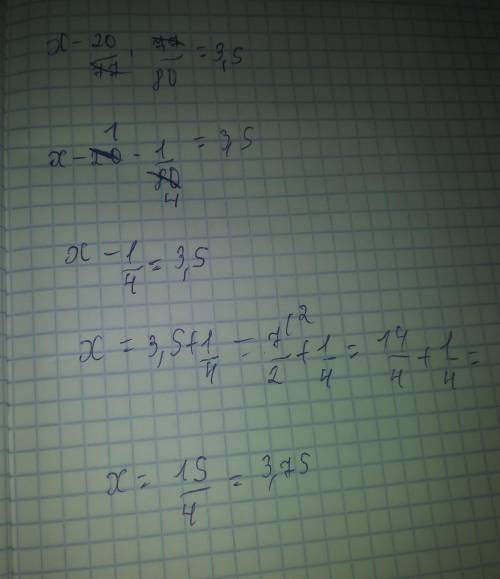 x - 20/77 · 77/80 = 3,5
x - 20 1 · 1/80 4 = 3,5
x - 1/4 = 3,5
x = 3,5 + 1/4 = 7(2/2 + 1/4 = 14/4 + 1/4 =
x = 15/4 = 3,75